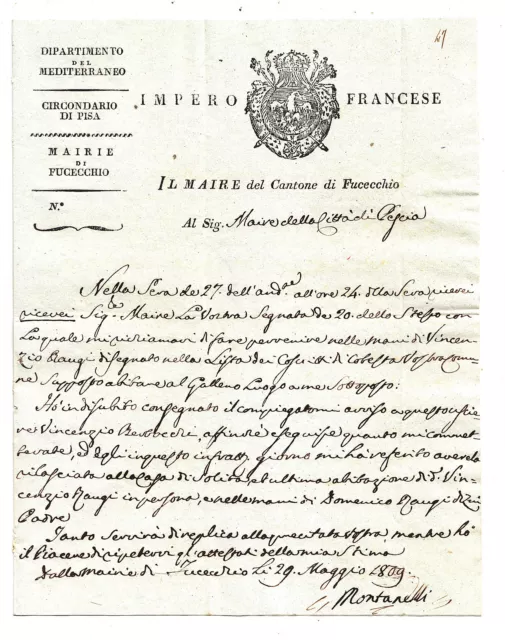 49
DIPARTIMENTO
DEL
MEDITERRANEO
CIRCONDARIO
DI PISA
MAIRIE
DI
FUCECCHIO
N.°
IMPERO FRANCESE
IL MAIRE del Cantone di Fucecchio
Al Sig. Maire della Città di Pescia
Nella Sera de 27. dell'and.te all'ore 24. della Sera ricevei
ricevei Sig.re Maire La Vostra Segnata de 20. dello Stesso con
La quale mi richiamavi di fare pervenire nelle mani di Vincen-
zio Raugi disegnato nella Lista dei Coscritti di Cotesta Vostra Comu-
ne Supposto abitare al Galleno Luogo a me Sottoposto:
Ho in di subito consegnato il compiegatomi avviso a questo usciere
Vincenzio affinché eseguisse quanto mi commet-
tavate, ed egli in questo infratt.o giorno mi ha referito averla
rilasciata alla Casa di Solita, ed ultima abitazione di d.° Vin-
cenzio Raugi in persona, e nelle mani di Domenico Raugi di Lui
Padre
Tanto Servirà di replica alla precitata Vostra, mentre ho
il Piacere di ripetervi gl'attestati della mia Stima
Dalla Mairie di Fucecchio Li 29. Maggio 1809.
Montanelli